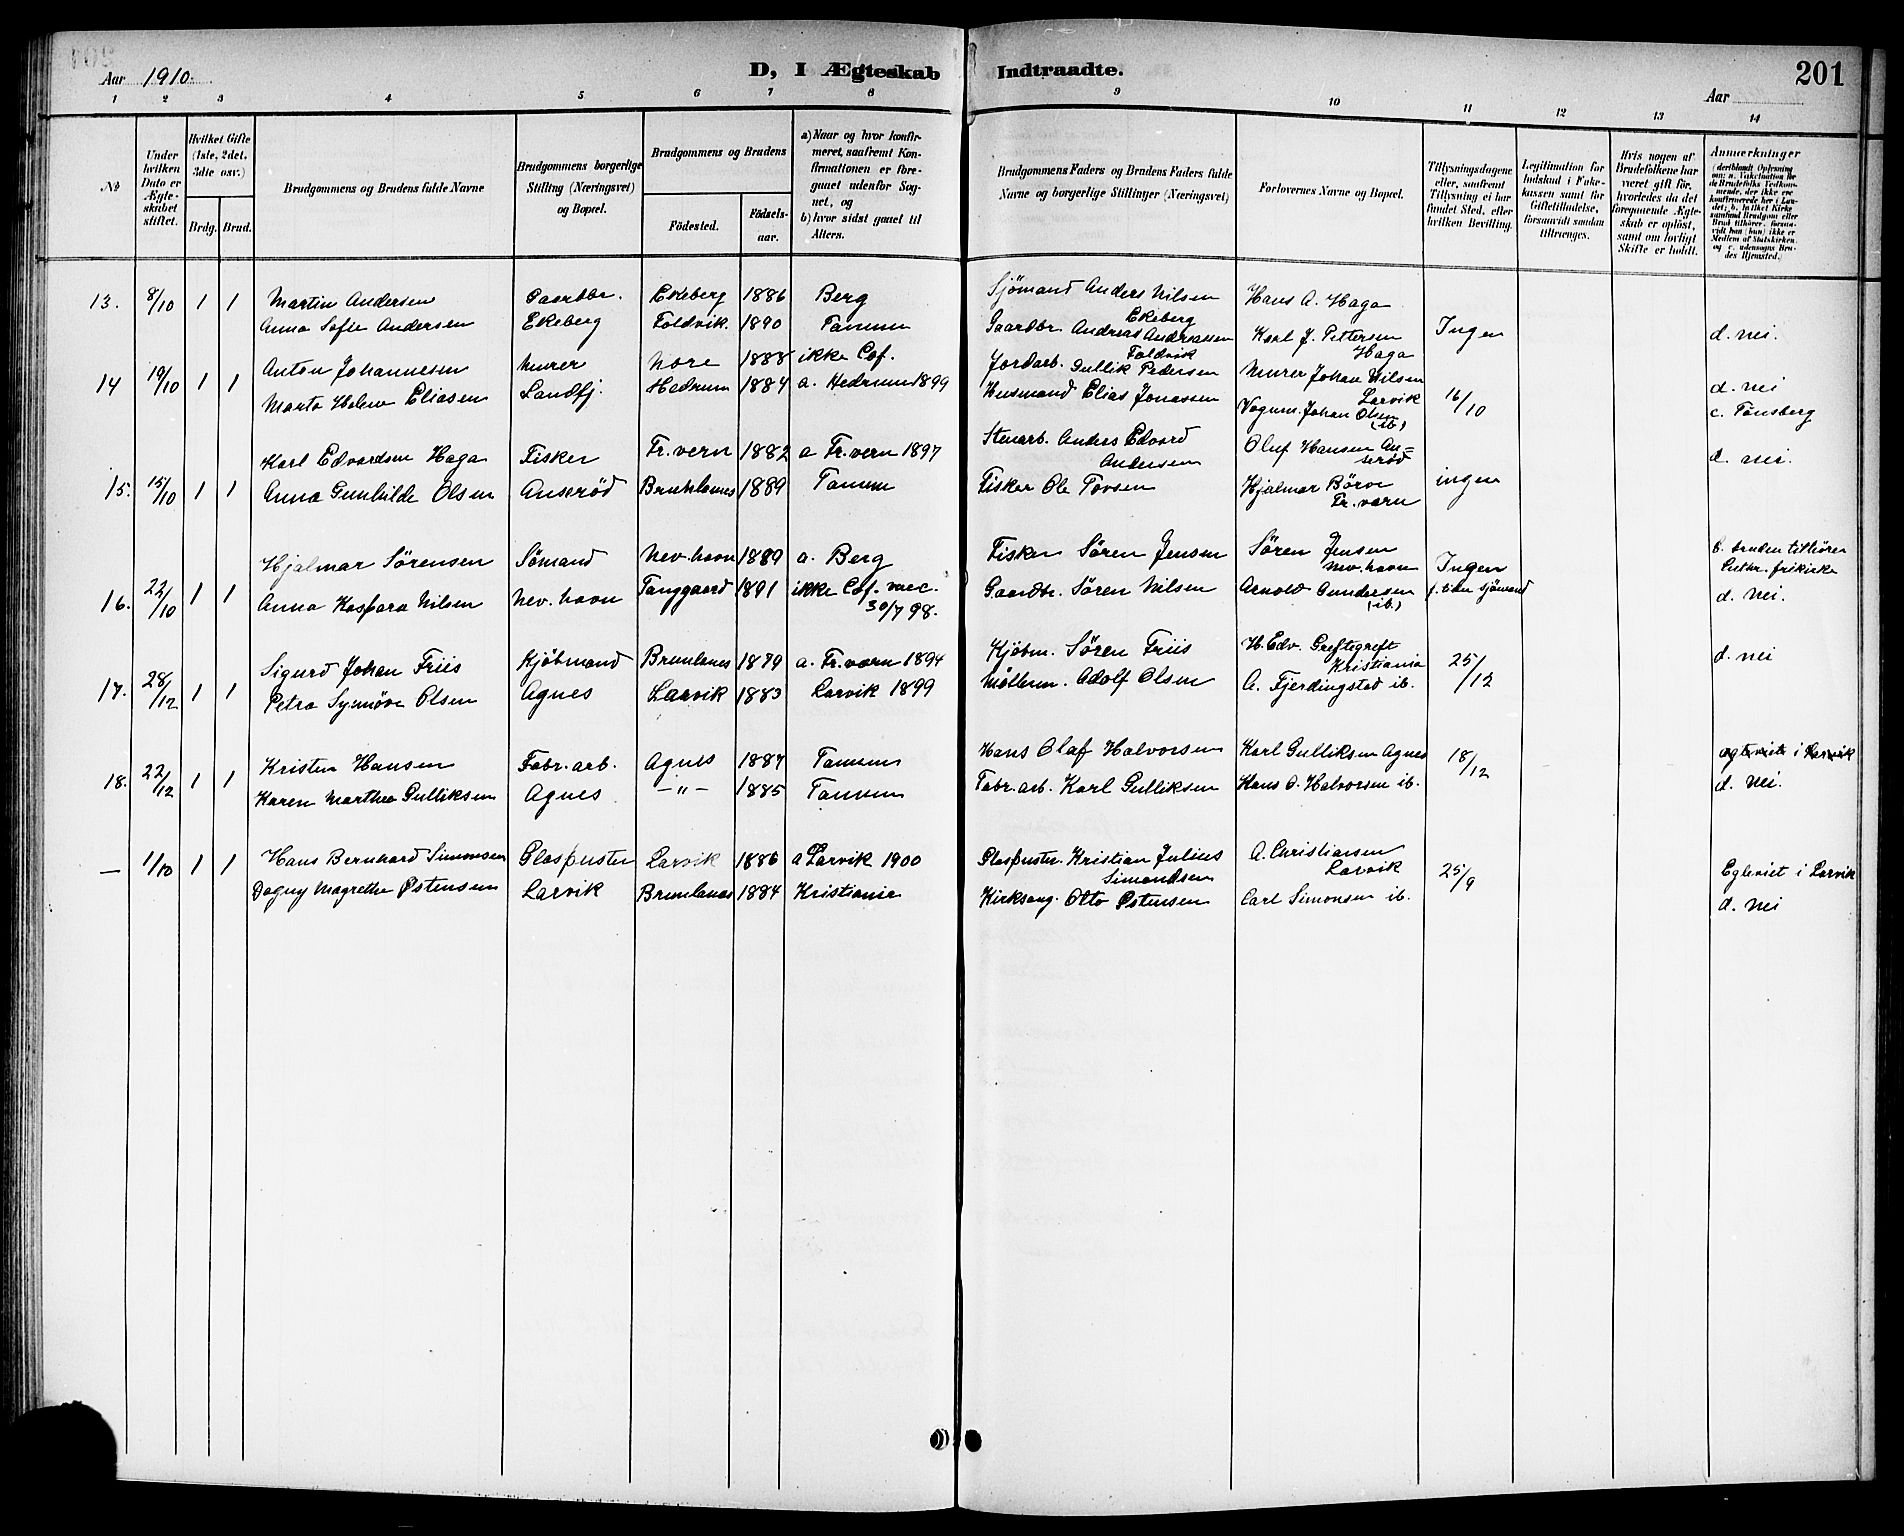 Aar 1910. D, I Ægteskab Indtraadte. Aar 201
1 2 3 4 5 6 7 8 9 10 11 12 13 14
№
Under hvilken Dato er Ægteskabet stiftet.
Hvilket Gifte (1ste, 2det, 3die osv.)
Brdg. Brud.
Brudgommens og Brudens fulde Navne
Brudgommens borgerlige Stilling (Næringsvei) og Bopæl.
Brudgommens og Brudens
Födested. Födselsaar.
a) Naar og hvor konfirmeret, saafremt Konfirmationen er foregaaet udenfor Sognet, og
b) hvor sidst gaaet til Alters.
Brudgommens Faders og Brudens Faders fulde Navne og borgerlige Stillinger (Næringsvei)
Forlovernes Navne og Bopæl.
Tillysningsdagene eller, saafremt Tillysning ei har fundet Sted, efter hvilken Bevilling.
Legitimation for Indskud i Enkekassen samt for Giftetilladelse, forsaavidt saadan tiltrænges.
Hvis nogen af Brudefolkene har været gift för, hvorledes da det foregaaende Ægteskab er oplöst, samt om lovligt Skifte er holdt.
Anmærkninger (deriblandt Oplysning om: a. Vakcination for de Brudefolks Vedkommende, der ikke ere konfirmerede her i Landet; b. hvilket Kirkesamfund Brudgom eller Brud tilhörer, forsaavidt han (hun) ikke er Medlem af Statskirken, og c. udensogns Brudes Hjemsted.)
13. 8/10 1 1 Martin Andersen Gaardbr. Ekeberg 1886 Berg Sjömand Anders Nilsen Ekeberg Hans A. Haga
Anna Sofie Andersen Ekeberg Foldvik 1890 Tanum Gaardbr. Andreas Andreassen Foldvik Karl J. Pettersen Haga Ingen d. nei.
14 19/10 1 1 Anton Johannesen Murer Nore 1888 ikke Cof. Jordarb. Gullik Pedersen Murer Johan Nilsen Larvik 16/10 d. nei
Marta Helene Eliasen Sandfj. Hedrum 1884 a. Hedrum 1899 Husmand Elias Jonassen Vognm. Johan Olsen (ib.) c. Tönsberg
15. 15/10 1 1 Karl Edvardsen Haga Fisker Fr.vern 1882 a Fr.vern 1897 Stenarb. Anders Edvard Andersen Oluf Hansen Anserød d. nei.
Anna Gunhilde Olsen Anserød Brunlanes 1889 Tanum Fisker Ole Tovsen Hjalmar Börve Fr.værn ingen
16. 22/10 1 1 Hjalmar Sörensen Sømand Nev.havn 1889 a. Berg Fisker Sören Jensen Sören Jensen Nev.havn Ingen b. bruden tilhörer Luthr. frikirke
Anna Kaspara Nilsen Nev.havn Tanggaard 1891 ikke Cof. vacc. 30/7 98. Gaardbr. Sören Nilsen Arnold Gundersen (ib.) sjömand d. nei.
17. 28/12 1 1 Sigurd Johan Friis Kjöbmand Brunlanes 1879 a. Fr.værn 1894 Kjöbm. Sören Friis H. Edv. Greftegreft Kristiania 25/12 d. nei
Petra Synnöve Olsen Agnes Larvik 1883 Larvik 1899 Möllerm. Adolf Olsen A. Fjerdingstad ib.
18. 22/12 1 1 Kristen Hansen Fabr.arb. Agnes 1887 Tanum Hans Olaf Halvorsen Karl Gulliksen Agnes 18/12 egteviet i Larvik
Karen Marthea Gulliksen Agnes —"— 1885 Tanum Fabr.arb. Karl Gulliksen Hans O. Halvorsen ib. d. nei.
— 1/10 1 1 Hans Bernhard Simonsen Glaspuster Larvik 1886 a Larvik 1900 Glaspuster Kristian Julius Simondsen A. Christiansen Larvik 25/9 Egteviet i Larvik
Dagny Magrethe Østensen Larvik Brunlanes 1884 Kristiania Kirksang. Otto Østensen Carl Simonsen ib. d. nei